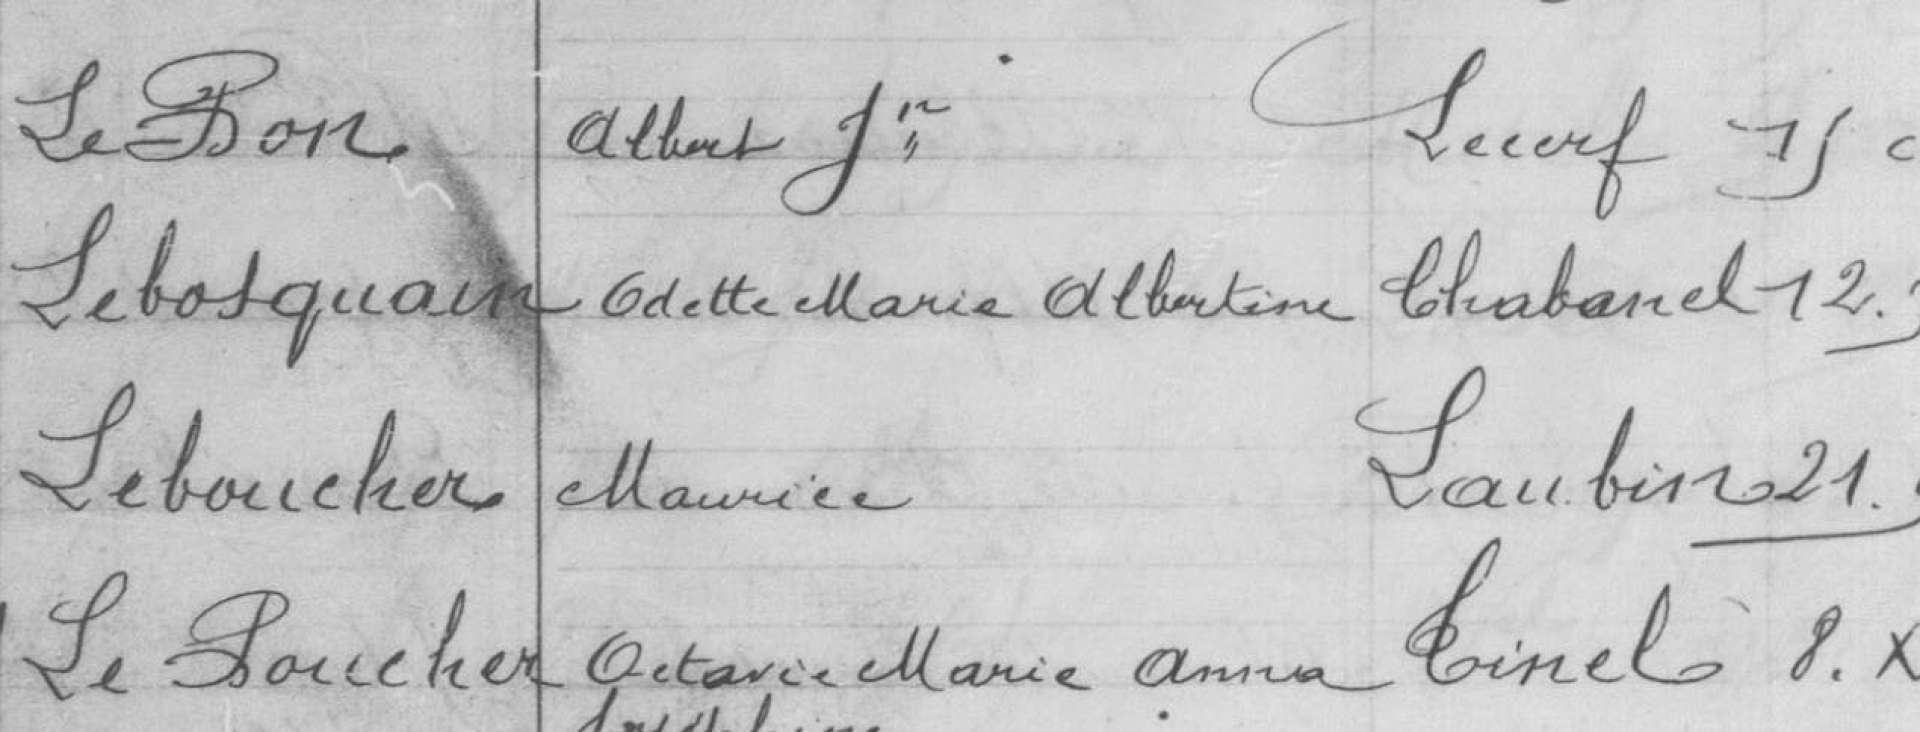 Le Bon Albert Jn Lecerf 15
Lebosquain Odette Marie Albertine Chabanel 12.
Leboucher Maurice Laubin 21.
Le Boucher Octavie Marie Anna Tinel 8. X
Joséphine